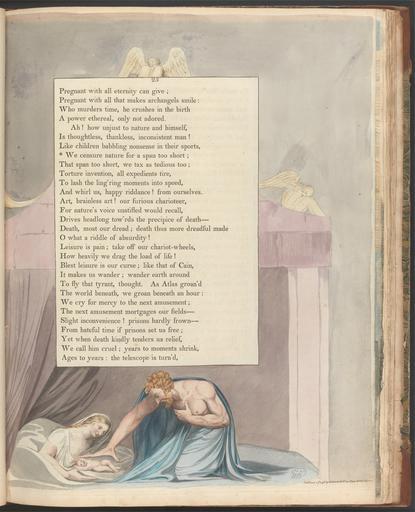 23
Pregnant with all eternity can give;
Pregnant with all that makes archangels smile:
Who murders time, he crushes in the birth
A power ethereal, only not adored.
Ah! how unjust to nature and himself,
Is thoughtless, thankless, inconsistent man!
Like children babbling nonsense in their sports,
* We censure nature for a span too short;
That span too short, we tax as tedious too;
Torture invention, all expedients tire,
To lash the ling'ring moments into speed,
And whirl us, happy riddance! from ourselves.
Art, brainless art! our furious charioteer,
For nature's voice unstifled would recall,
Drives headlong tow'rds the precipice of death—
Death, most our dread; death thus more dreadful made
O what a riddle of absurdity!
Leisure is pain; take off our chariot-wheels,
How heavily we drag the load of life!
Blest leisure is our curse; like that of Cain,
It makes us wander; wander earth around
To fly that tyrant, thought. As Atlas groan'd
The world beneath, we groan beneath an hour:
We cry for mercy to the next amusement;
The next amusement mortgages our fields—
Slight inconvenience! prisons hardly frown—
From hateful time if prisons set us free;
Yet when death kindly tenders us relief,
We call him cruel; years to moments shrink,
Ages to years: the telescope is turn'd,